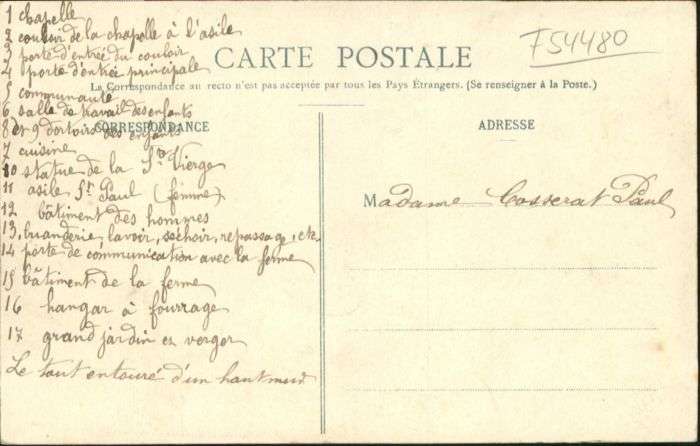 1 chapelle
2 couloir de la chapelle à l'asile
3 porte d'entrée du couloir
4 porte d'entrée principale
5 communauté
6 salle de travail des enfants
8 et 9 dortoirs des enfants
7 cuisine
10 statue de la Ste Vierge
11 asile St Paul (femme)
12 bâtiment des hommes
13, buanderie, lavoir, séchoir, repassage, etc.
14 porte de communication avec la ferme
15 bâtiment de la ferme
16 hangar à fourrage
17 grand jardin et verger
Le tout entouré d'un haut mur
F54480
CARTE POSTALE
La Correspondance au recto n'est pas acceptée par tous les Pays Étrangers. (Se renseigner à la Poste.)
CORRESPONDANCE
ADRESSE
Madame Cosserat Paul